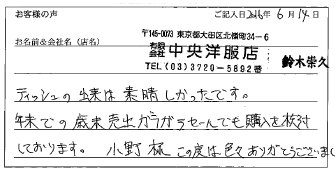 お客様の声
ご記入日2016年6月14日
お名前&会社名(店名)
〒145-0073 東京都大田区北嶺町34-6
有限会社 中央洋服店 鈴木崇久
TEL (03)3720-5892番
ティッシュの出来は素晴しかったです。
年末での歳末売出ガラガラセールでも購入を検討
しております。 小野様 この度は色々ありがとうございまし